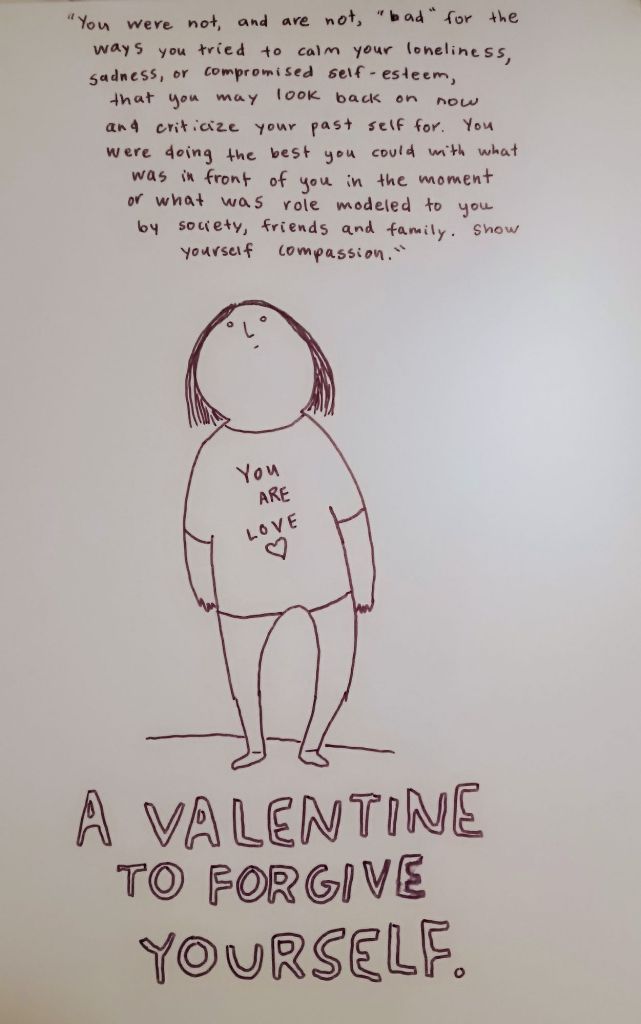 "You were not, and are not, "bad" for the
ways you tried to calm your loneliness,
sadness, or compromised self-esteem,
that you may look back on now
and criticize your past self for. You
were doing the best you could with what
was in front of you in the moment
or what was role modeled to you
by society, friends and family. Show
yourself compassion."
YOU
ARE
LOVE
A VALENTINE
TO FORGIVE
YOURSELF.